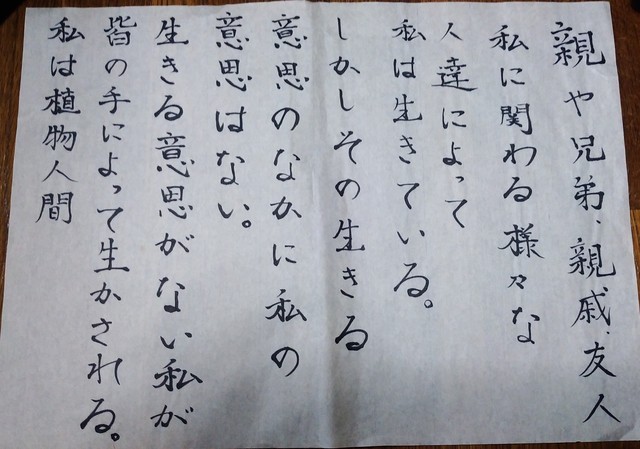 親や兄弟、親戚、友人
私に関わる様々な
人達によって
私は生きている。
しかしその生きる
意思のなかに私の
意思はない。
生きる意思がない私が
皆の手によって生かされる。
私は植物人間